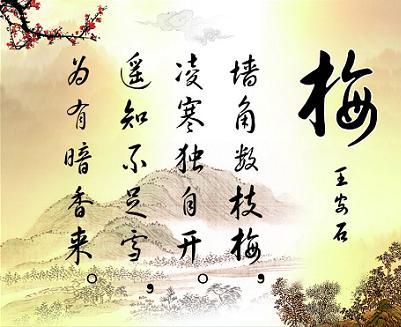 梅
王安石
墙角数枝梅，
凌寒独自开。
遥知不足雪，
为有暗香来。